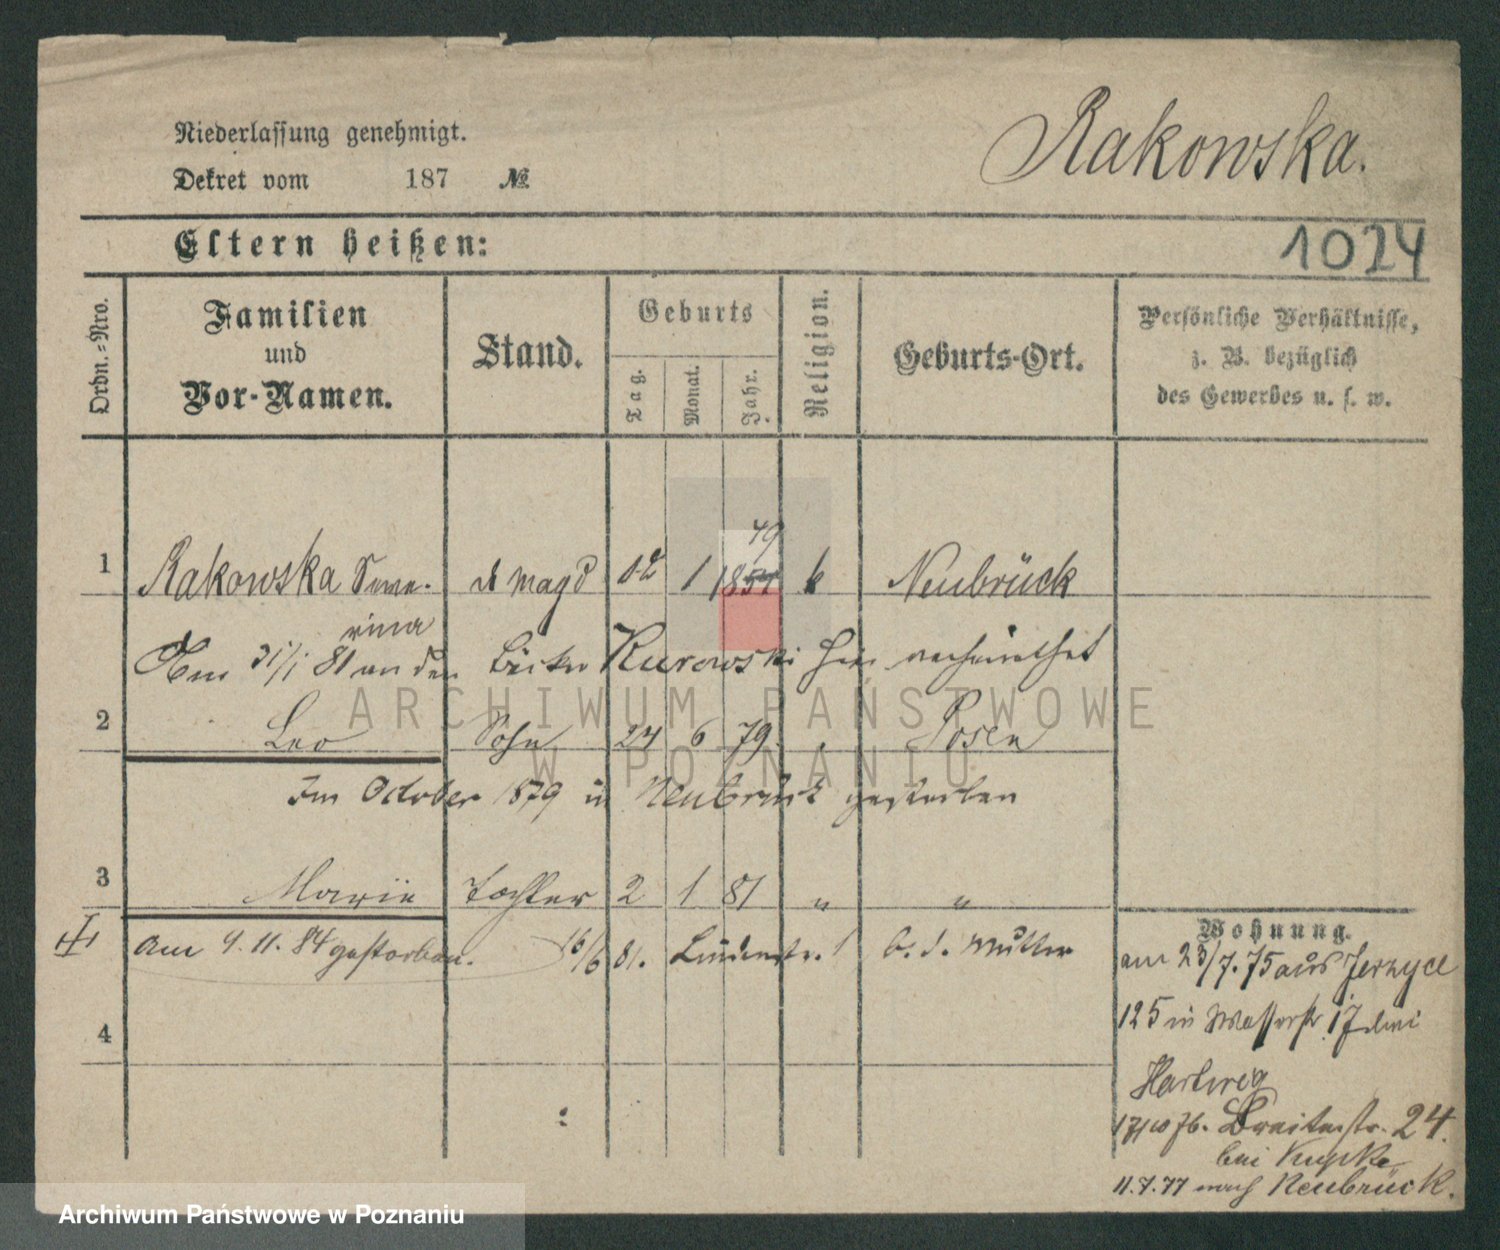 Niederlassung genehmigt.
Rakowska.
Dekret vom 187 №
Eltern heißen:
1024
Ordn.-Nro.
Familien
und
Vor-Namen.
Stand.
Geburts
Tag.
Monat.
Jahr.
Religion.
Geburts-Ort.
Persönliche Verhältnisse,
z. B. bezüglich
des Gewerbes u. s. w.
49
1 Rakowska Seve- d Magd 1 1854 k Neubrück
rina
Am 31/1 81 an den Bäcker Kurowski hier verheirathet
ARCHIWUM PAŃSTWOWE
2 Leo Sohn 24 6 79 Posen
W POZNANIU
Im October 1879 in Neubrück gestorben
3 Marie Tochter 2 1 81 " "
Am 9. 11. 84 gestorben. 16/6 81. Lindenstr. 1 b. d. Mutter
4
Wohnung.
am 23/7. 75 aus Jerzyce
125 in Wasserstr. 17 bei
Hartwig
17/10 76. Breitestr. 24.
bei Kupke
11.7.77 nach Neubrück.
Archiwum Państwowe w Poznaniu